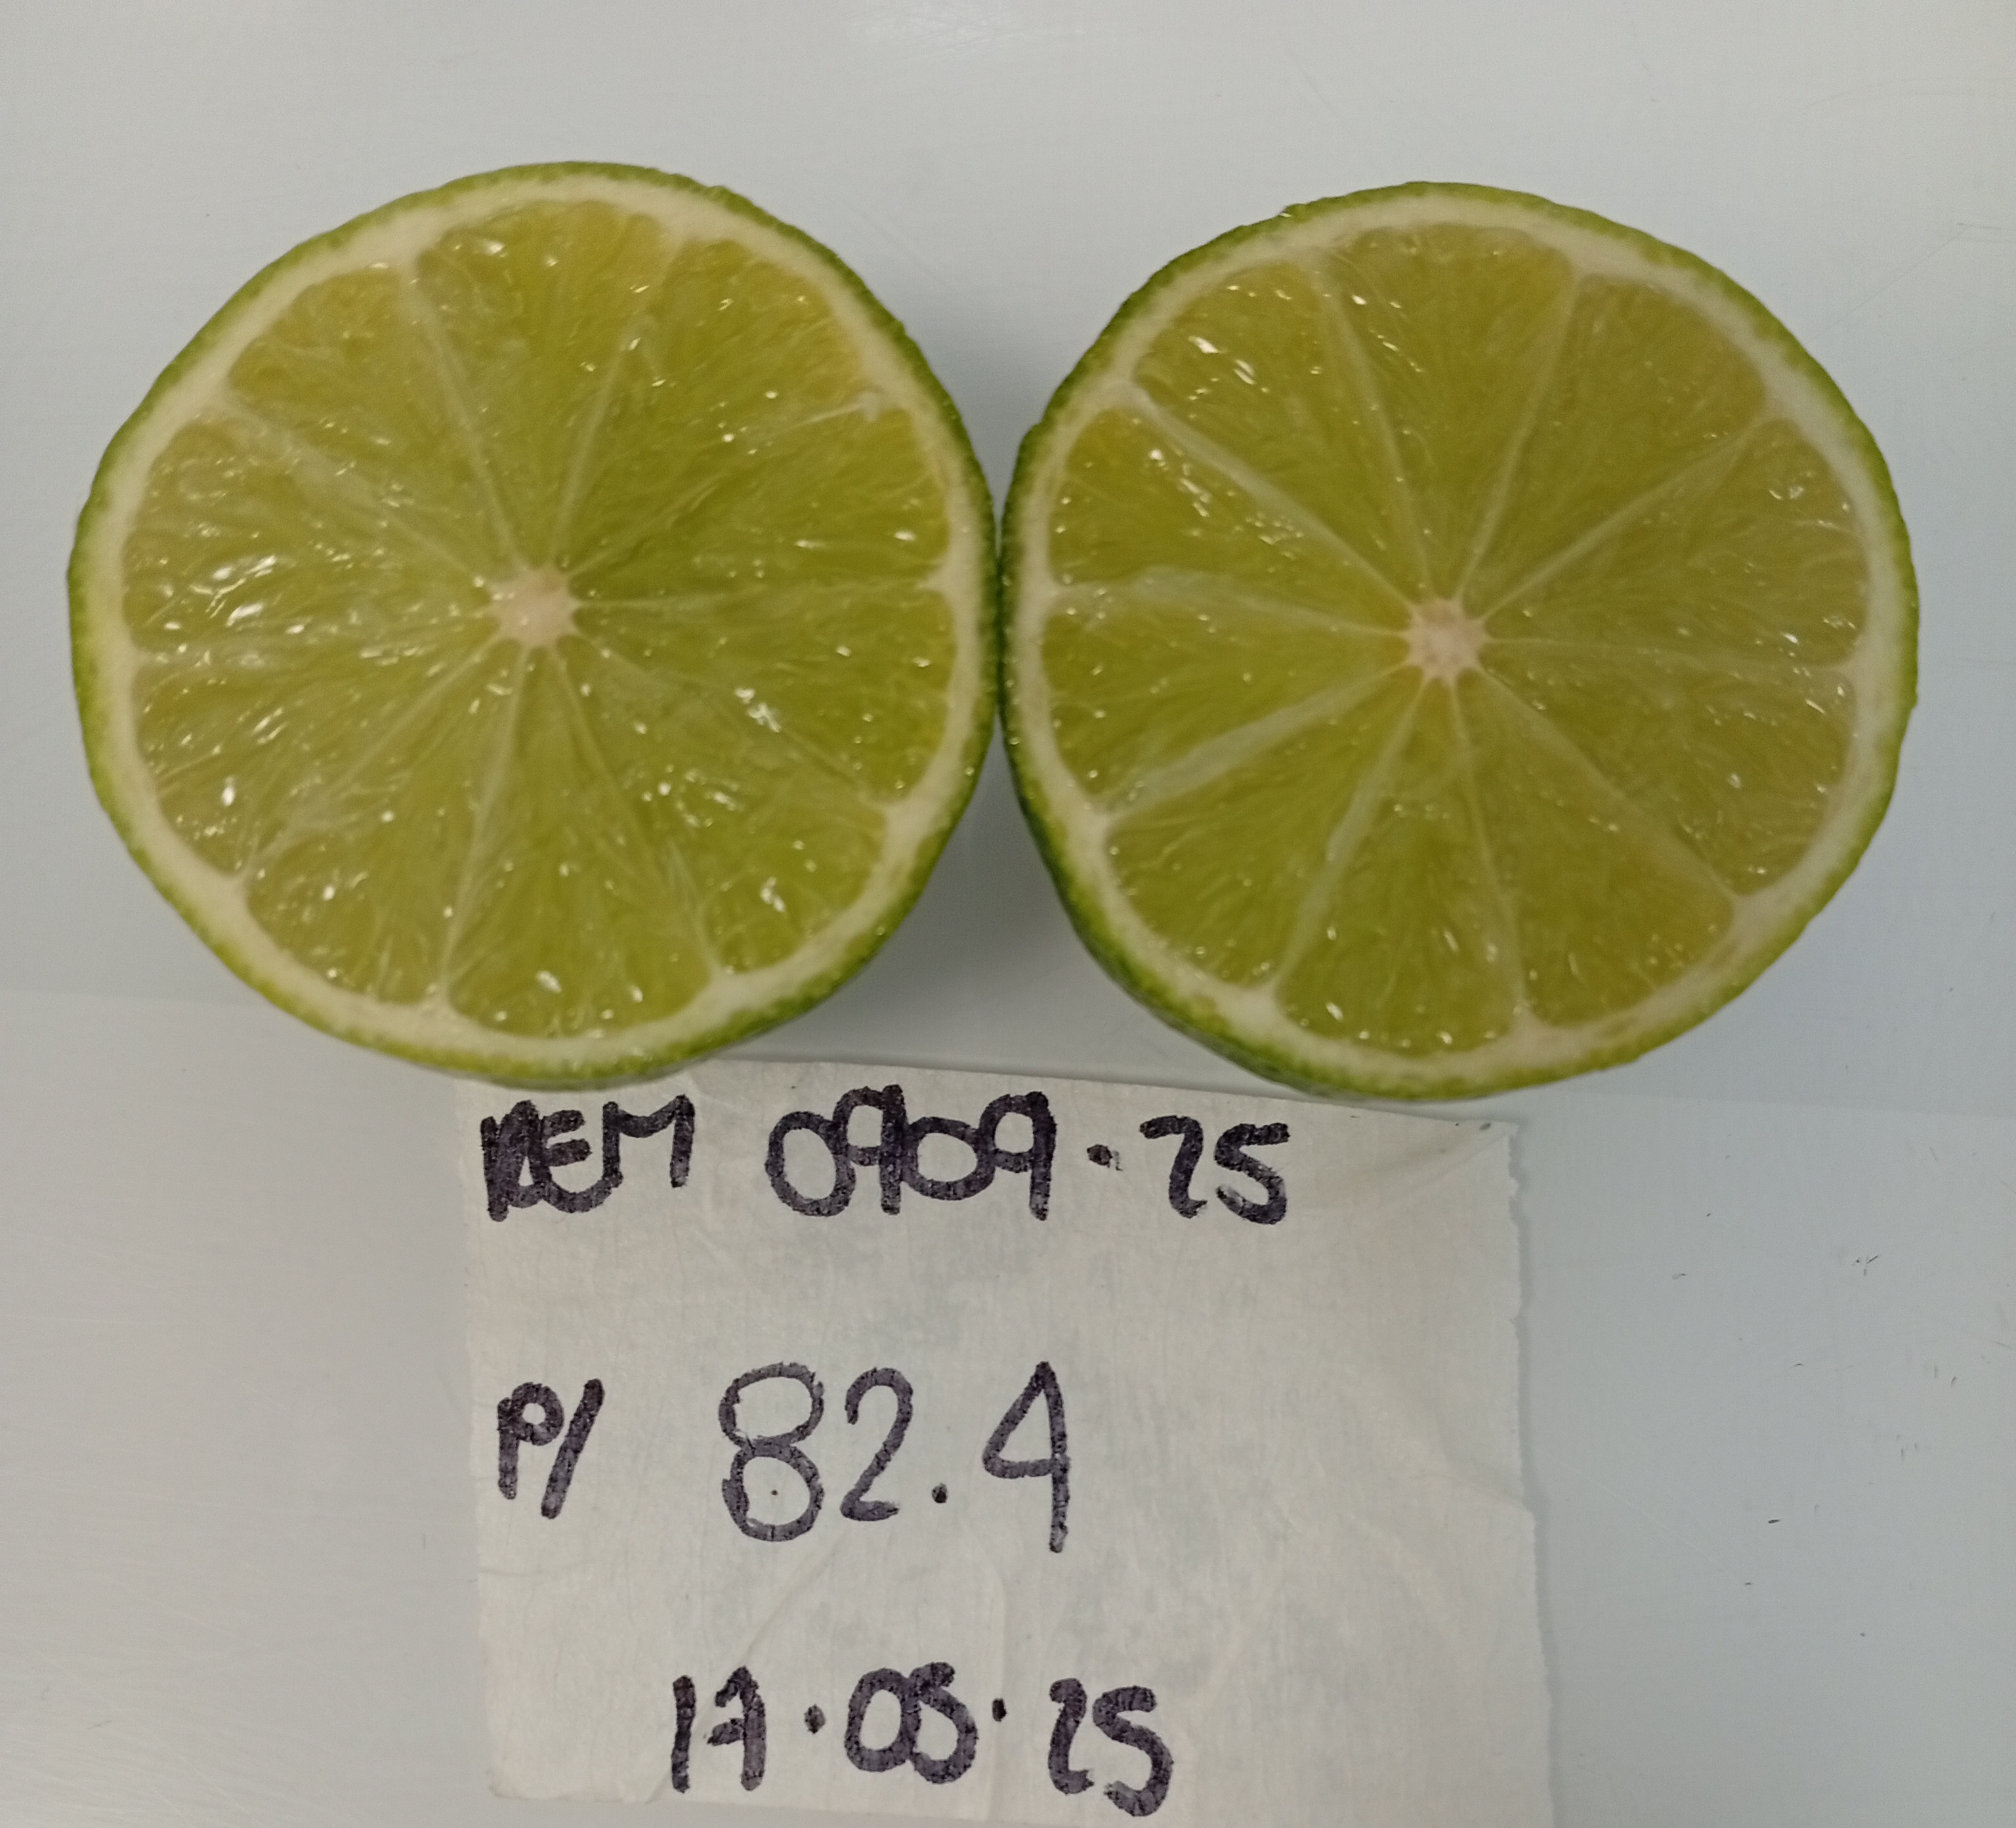 REM 0909.25
P/ 82.4
17.05.25